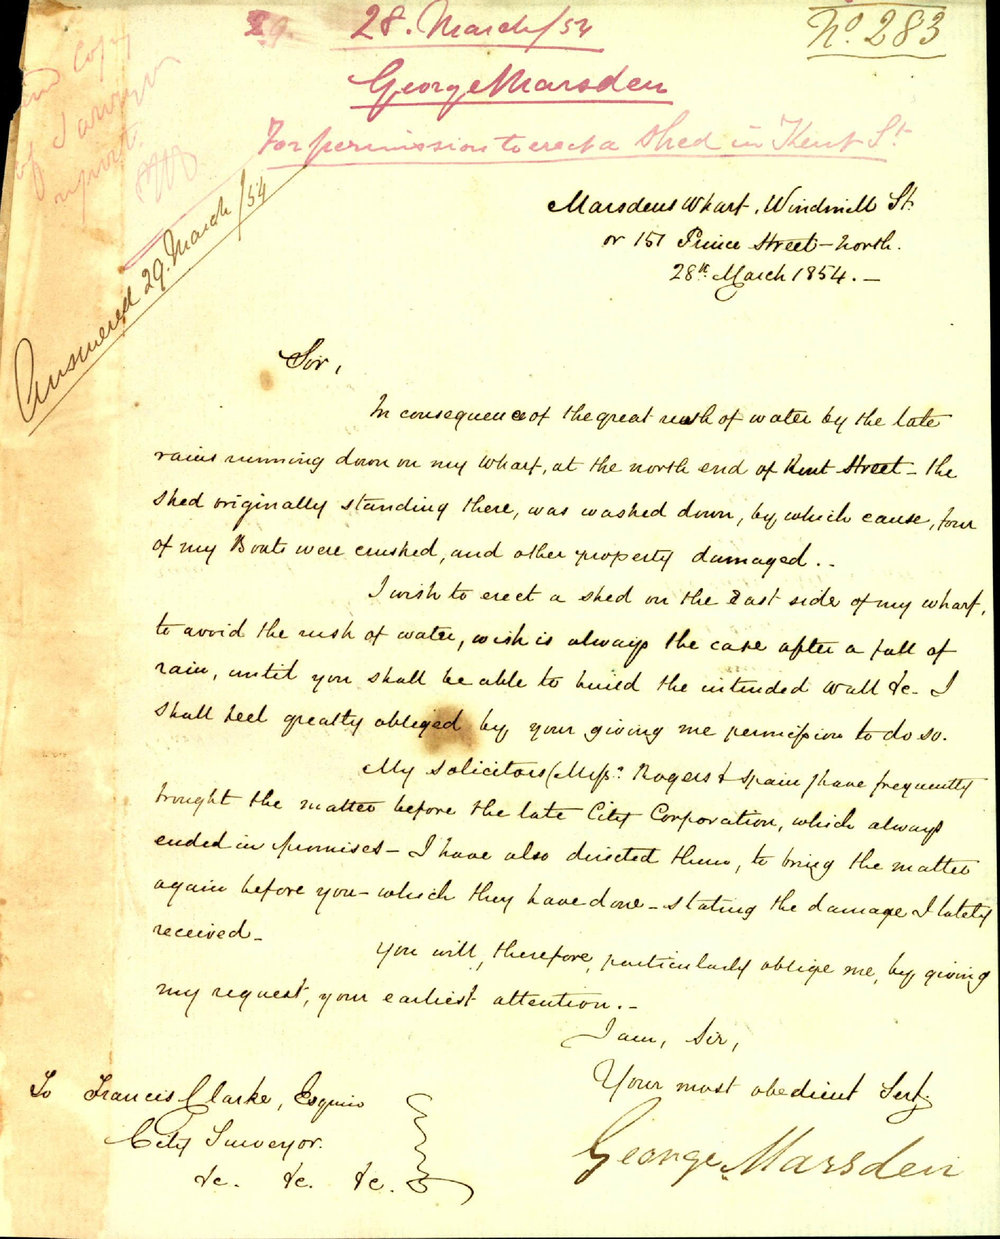 29. 28. March/54
No. 283
George Marsden
For permission to erect a Shed in Kent St.
Copy
of Surveyor's
report.
Answered 29. March/54
Marsdens Wharf, Windmill St.
or 151 Prince Street-North.
28th March 1854.-
Sir,
In consequence of the great rush of water by the late
rains running down on my wharf, at the north end of Kent Street - the
shed originally standing there, was washed down, by which cause, four
of my Boats were crushed, and other property damaged..
I wish to erect a shed on the East side of my wharf,
to avoid the rush of water, wish is always the case after a fall of
rain, until you shall be able to build the intended wall &c. I
shall feel greatly obliged by your giving me permission to do so.
My Solicitors (Messrs. Rogers & Spain) have frequently
brought the matter before the late City Corporation, which always
ended in promises - I have also directed them, to bring the matter
again before you - which they have done - stating the damage I lately
received -
You will, therefore, particularly oblige me, by giving
my request, your earliest attention. -
I am, Sir,
Your most obedient Servt.
George Marsden
To Francis Clarke, Esquire
City Surveyor.
&c. &c. &c.